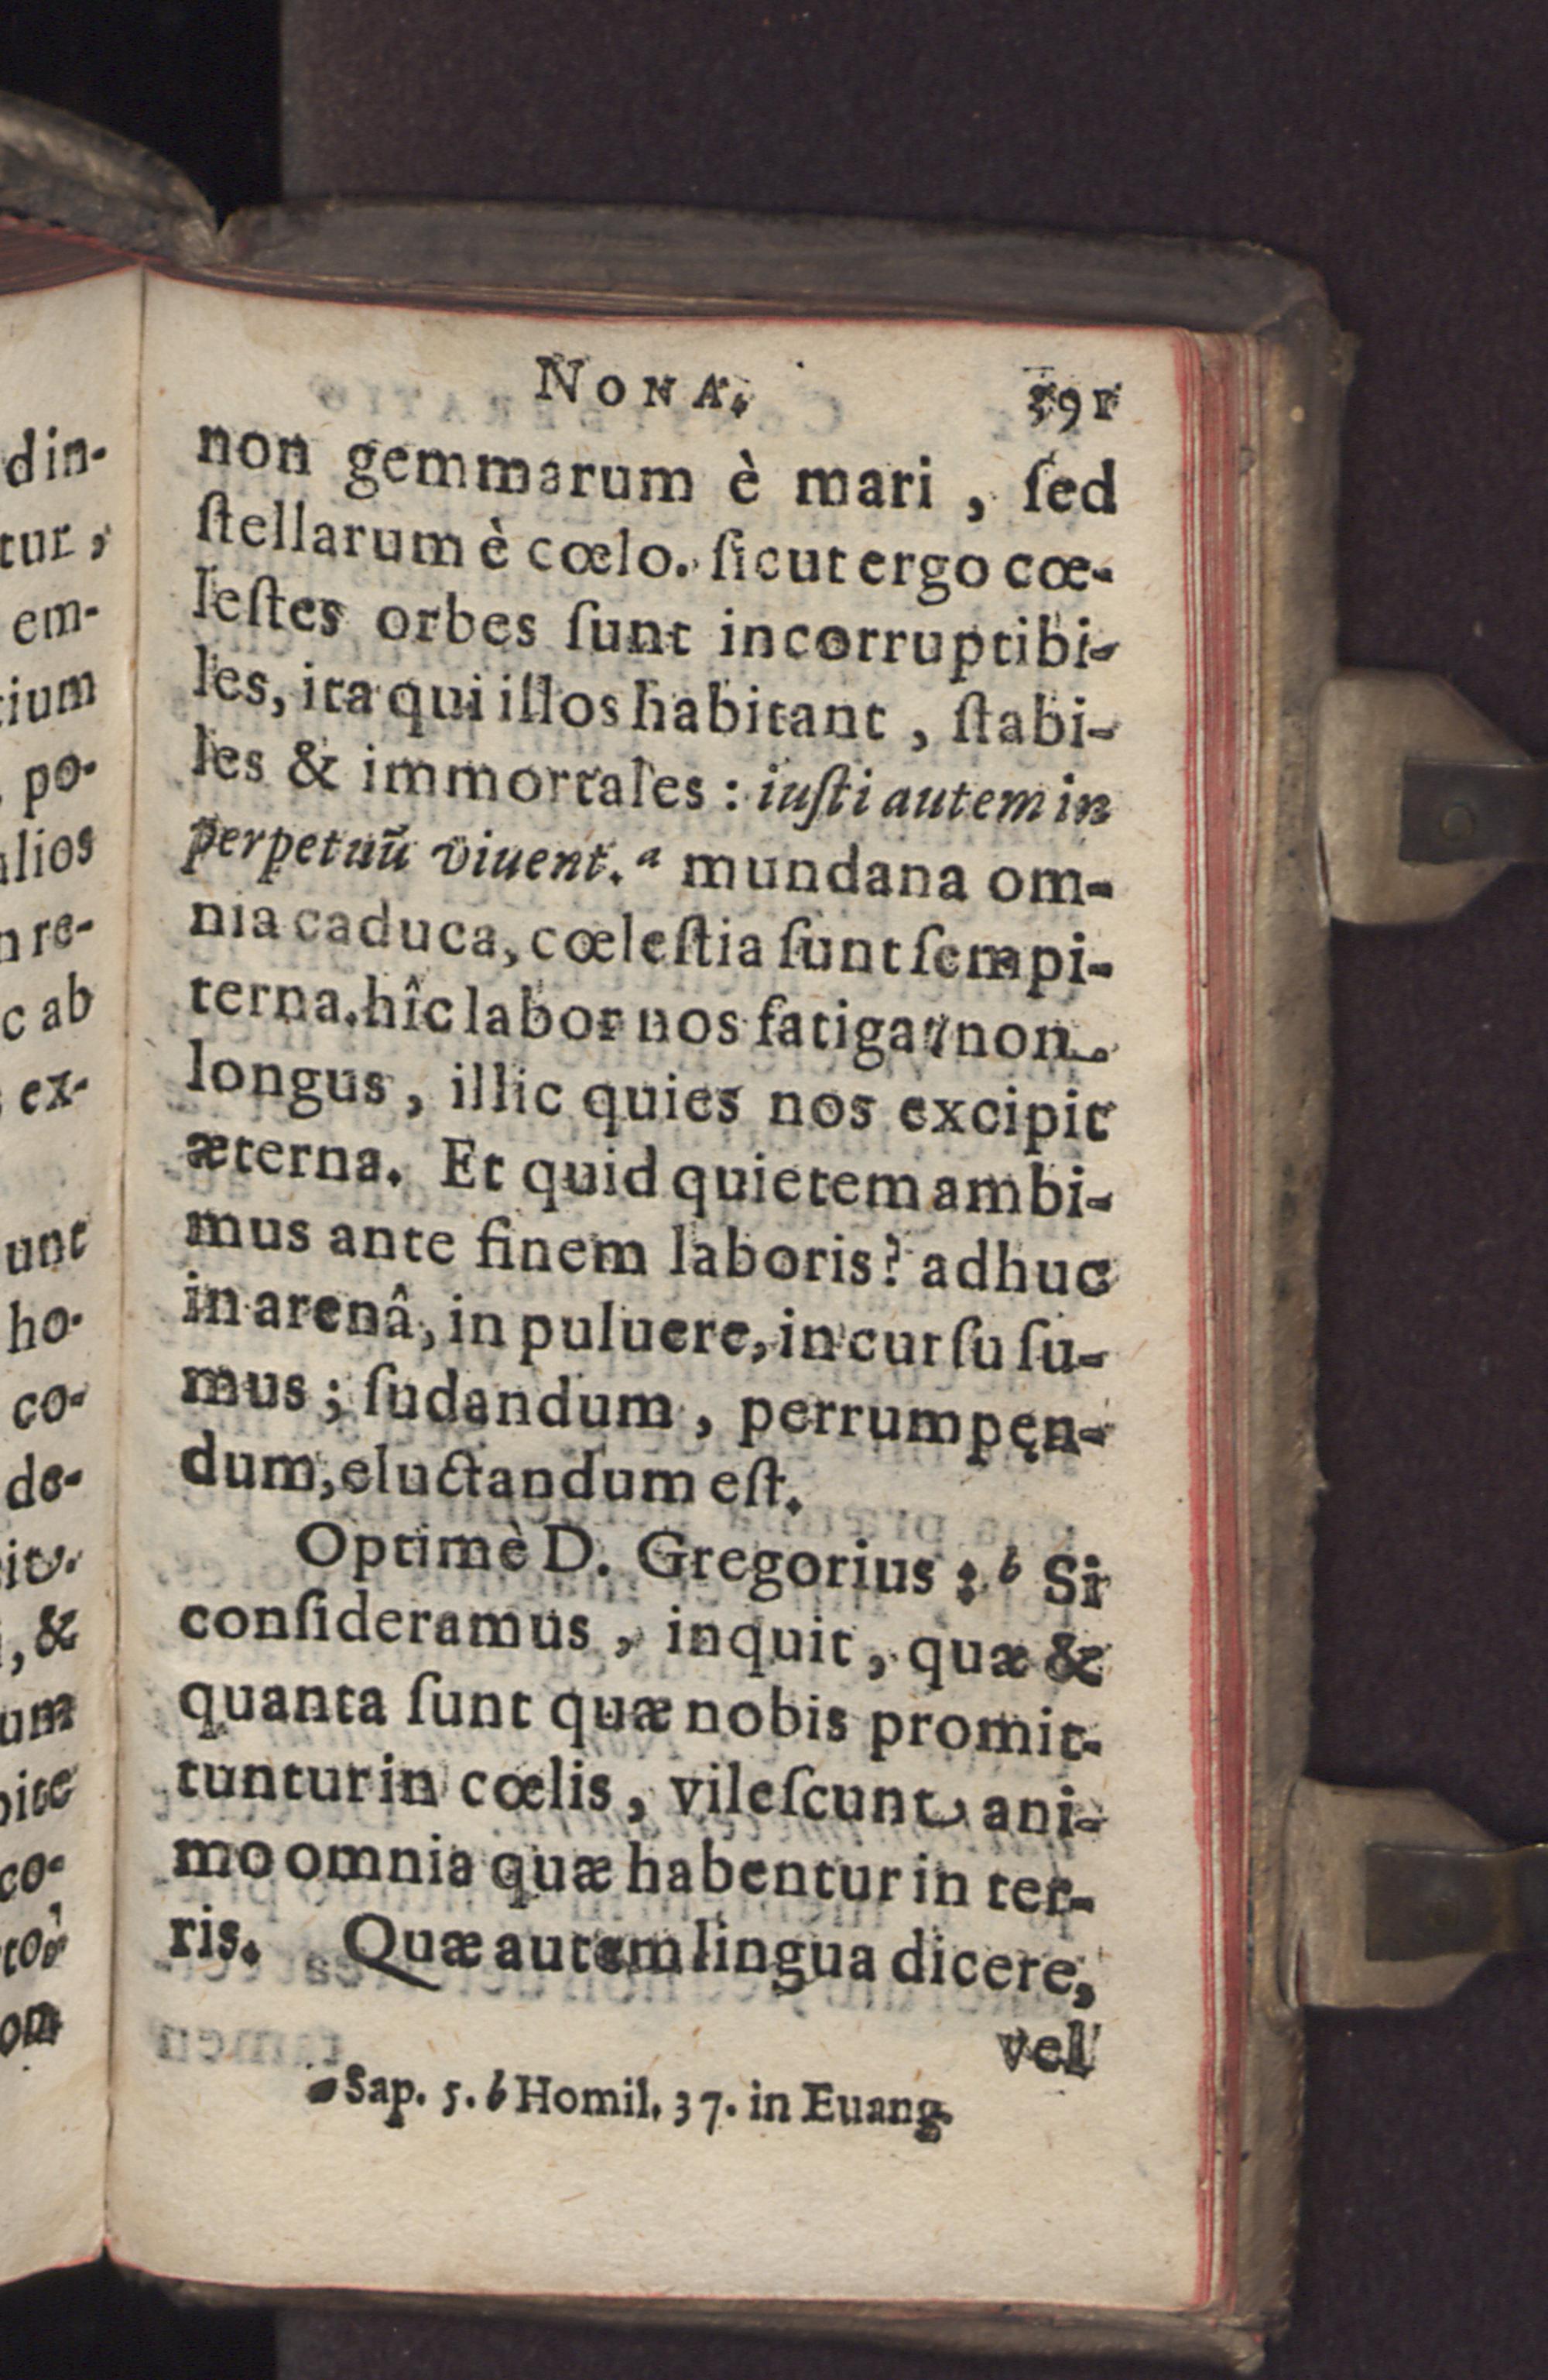 NONA. 191
non gemmarum è mari, ſed
ſtellarum è cœlo. ſicut ergo cœ-
leſtes orbes ſunt incorruptibi-
les, ita qui illos habitant, ſtabi-
les & immortales: iuſti autem in
perpetuũ viuent.ᵃ mundana om-
nia caduca, cœleſtia ſunt ſempi-
terna. hîc labor nos fatigat non
longus, illic quies nos excipit
æterna. Et quid quietem ambi-
mus ante finem laboris? adhuc
in arenâ, in puluere, in curſu ſu-
mus; ſudandum, perrumpen-
dum, eluctandum eſt.
Optimè D. Gregorius:ᵇ Si
conſideramus, inquit, quæ &
quanta ſunt quæ nobis promit-
tuntur in cœlis, vileſcunt ani-
mo omnia quæ habentur in ter-
ris. Quæ autem lingua dicere,
vel
a Sap. 5. b Homil. 37. in Euang.
din-
tur,
em-
tium
po-
alios
n re-
c ab
ex-
unt
ho-
co-
de-
, &
um
co-